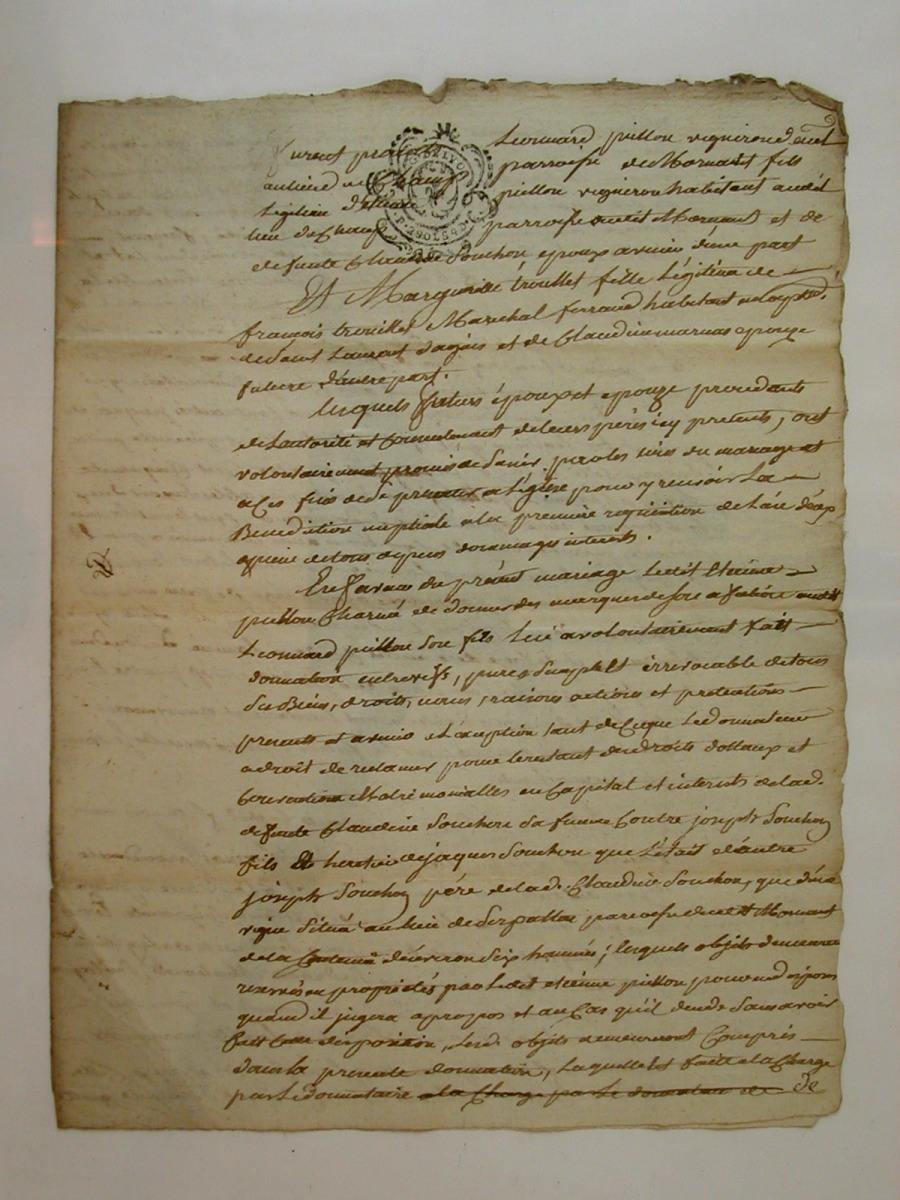 furent presents Leonnard pitton vigneron demt
au lieu de Champ parroisse de Mornant fils
Légitime d'etienne pitton vigneron habitant audit
lieu de Champ parroisse dudit Mornant et de
defunte Claudine Souchon epoux avenir d'une part
Et Margueritte trouillet fille Légitime de
françois trouillet Marechal ferrand habitant
de Saint Laurent dagnis et de Claudine marnas epouze
future d'autre part.
lesquels futurs époux et epouze procedants
de Lautorité et Consentement de leurs pères icy presents, ont
volontairement promis de Sunir par les liens du mariage et
a Ces fins de se presenter a Léglise pour y recevoir La
Benediction nuptiale a la premiere requisition de Lun d'eux
a peine de tous depens dommages interets.
En faveur du présent mariage Ledit Etienne
pitton Charmé de donner des marques de Son affection audit
Leonnard pitton Son fils Lui a volontairement fait
donnation entrevifs, pure Simple et irrevocable de tous
Ses Biens, droits, noms, raisons actions et pretentions
presents et avenir a L'exception tant de Ce que Le donnateur
a droit de reclamer pour le restant des droits dottaux et
Matrimonialles en Capital et interets de lad.
defunte Claudine Souchon Sa femme Contre joseph Souchon
fils et heritier de jaques Souchon que L'etait d'autre
joseph Souchon père de lad. Claudine Souchon, que d'une
vigne Situé au lieu de parroisse dudit Mornant
de la Contenue d'environ Six hommées; lesquels objets demeurent
reservés en propriétés par Ledit etienne pitton pour en disposer
quand il jugera apropos et au Cas qu'il decede Sans avoir
fait Cette disposition, Lesd. objets demeureront Compris
dans la presente donnation, Laquelle est faite a la Charge
par Le donnataire a la Charge par Le donnataire de de